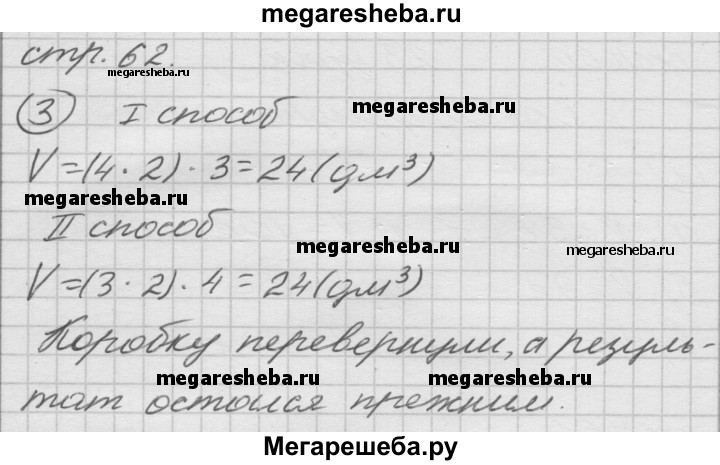 megaresheba.ru
стр. 62.
megaresheba.ru
3 I способ
megaresheba.ru
V=(4·2)·3=24(дм³)
megaresheba.ru
II способ
megaresheba.ru
megaresheba.ru
V=(3·2)·4=24(дм³)
Коробку перевернули, а резуль-
megaresheba.ru
megaresheba.ru
тат остался прежним.
Мегарешеба.ру